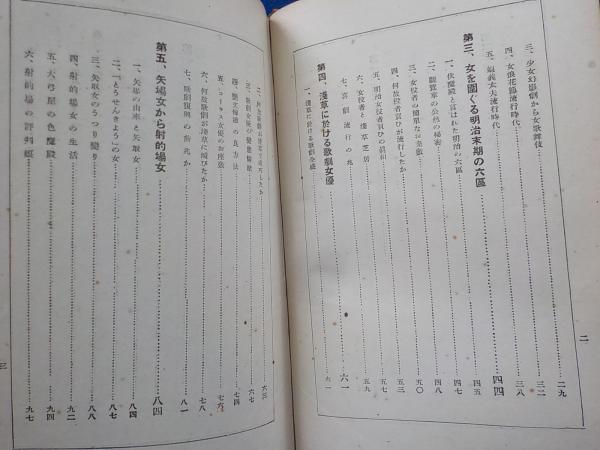 三、少女幻影劇から女歌舞伎……二九
四、女浪花節流行時代……三二
五、娘義太夫流行時代……三八
第三、女を圍ぐる明治末期の六區……四四
一、伏魔殿と言はれた明治の六區……四五
二、觀覽車の公然の秘密……四七
三、女役者の簡單なお樂歌……四八
四、何故役者買ひが流行したか……五〇
五、明治女役者買ひの眞相……五三
六、女役者と淺草芝居……五七
七、喜劇流行の兆……五九
第四、淺草に於ける歌劇女優……六一
一、淺草に於ける歌劇全盛……六一
二
六三
三、歌劇女優の變態情慾……六七
七四
五、コーラス女優のお座敷……七六
六、何故歌劇が淺草に滅びたか……七八
七、歌劇復興の兆光か……八一
第五、矢場女から射的場女……八四
一、矢場の由來と矢取女……八四
二、「とうせんきよう」の女……八七
三、矢取女のうつり變り……八八
四、射的場女の生活……九二
五、大弓屋の色魔殿……九四
六、射的場の評判娘……九七
三